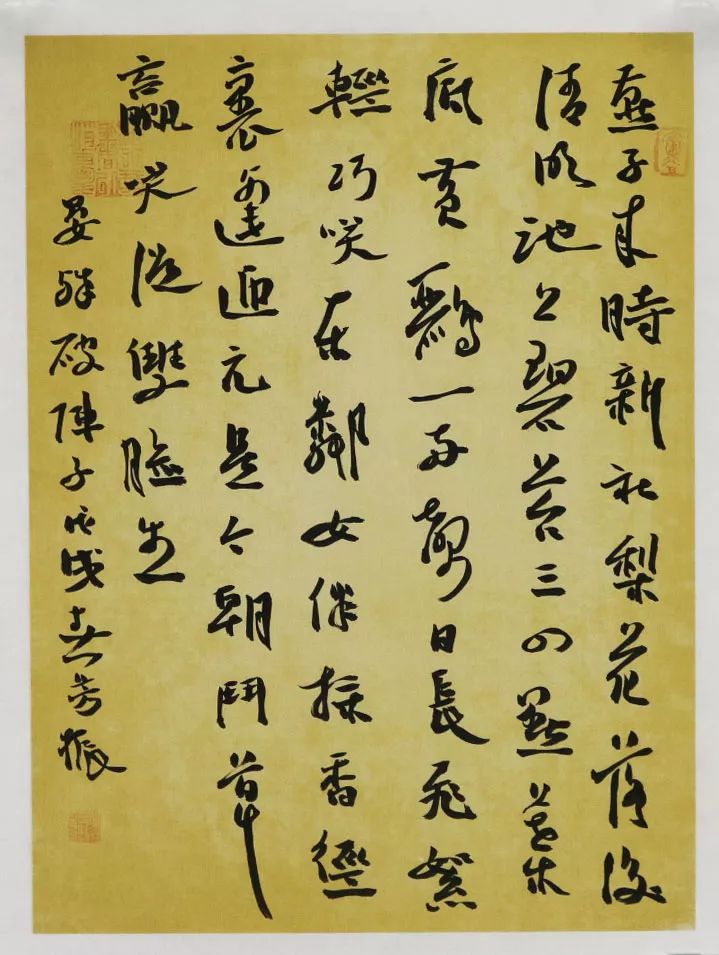 燕子来時新社梨花落後
清明池上碧苔三四點葉
底黄鸝一兩聲日長飛絮
輕巧咲東鄰女伴採香徑
裏逢迎元是今朝鬥草
贏咲從雙臉生
晏殊破陣子戊戌芳振